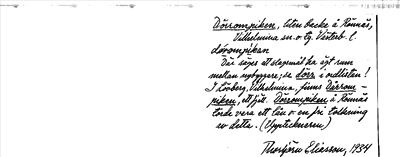 Dörrompiken, liten backe å Rönnäs,
Vilhelmina sn o tg Västerb. l.
dörompiken
Där säges ett slagsmål ha ägt rum
mellan nybyggare, se dörr i ordlistan!
I Lövberg, Vilhelmina, finns Dörrom-
piken, ett fjäll. Dörrompiken å Rönnäs
torde vara ett lån o en fri tolkning
av detta. (Uppteckneren)
Thorbjörn Eliasson, 1934